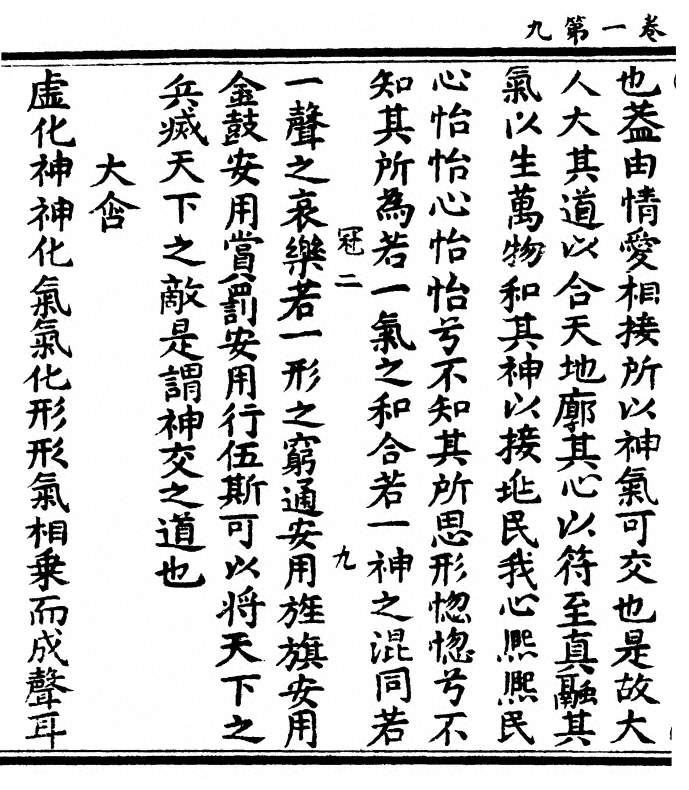 卷一第九
也葢由情愛相接所以神氣可交也是故大
人大其道以合天地廓其心以符至真融其
氣以生萬物和其神以接兆民我心熙熙民
心怡怡心怡怡兮不知其所思形惚惚兮不
知其所為若一氣之和合若一神之混同若
冠二 九
一聲之哀樂若一形之窮通安用旌旗安用
金鼓安用賞罰安用行伍斯可以将天下之
兵滅天下之敵是謂神交之道也
大含
虛化神神化氣氣化形形氣相乗而成聲耳